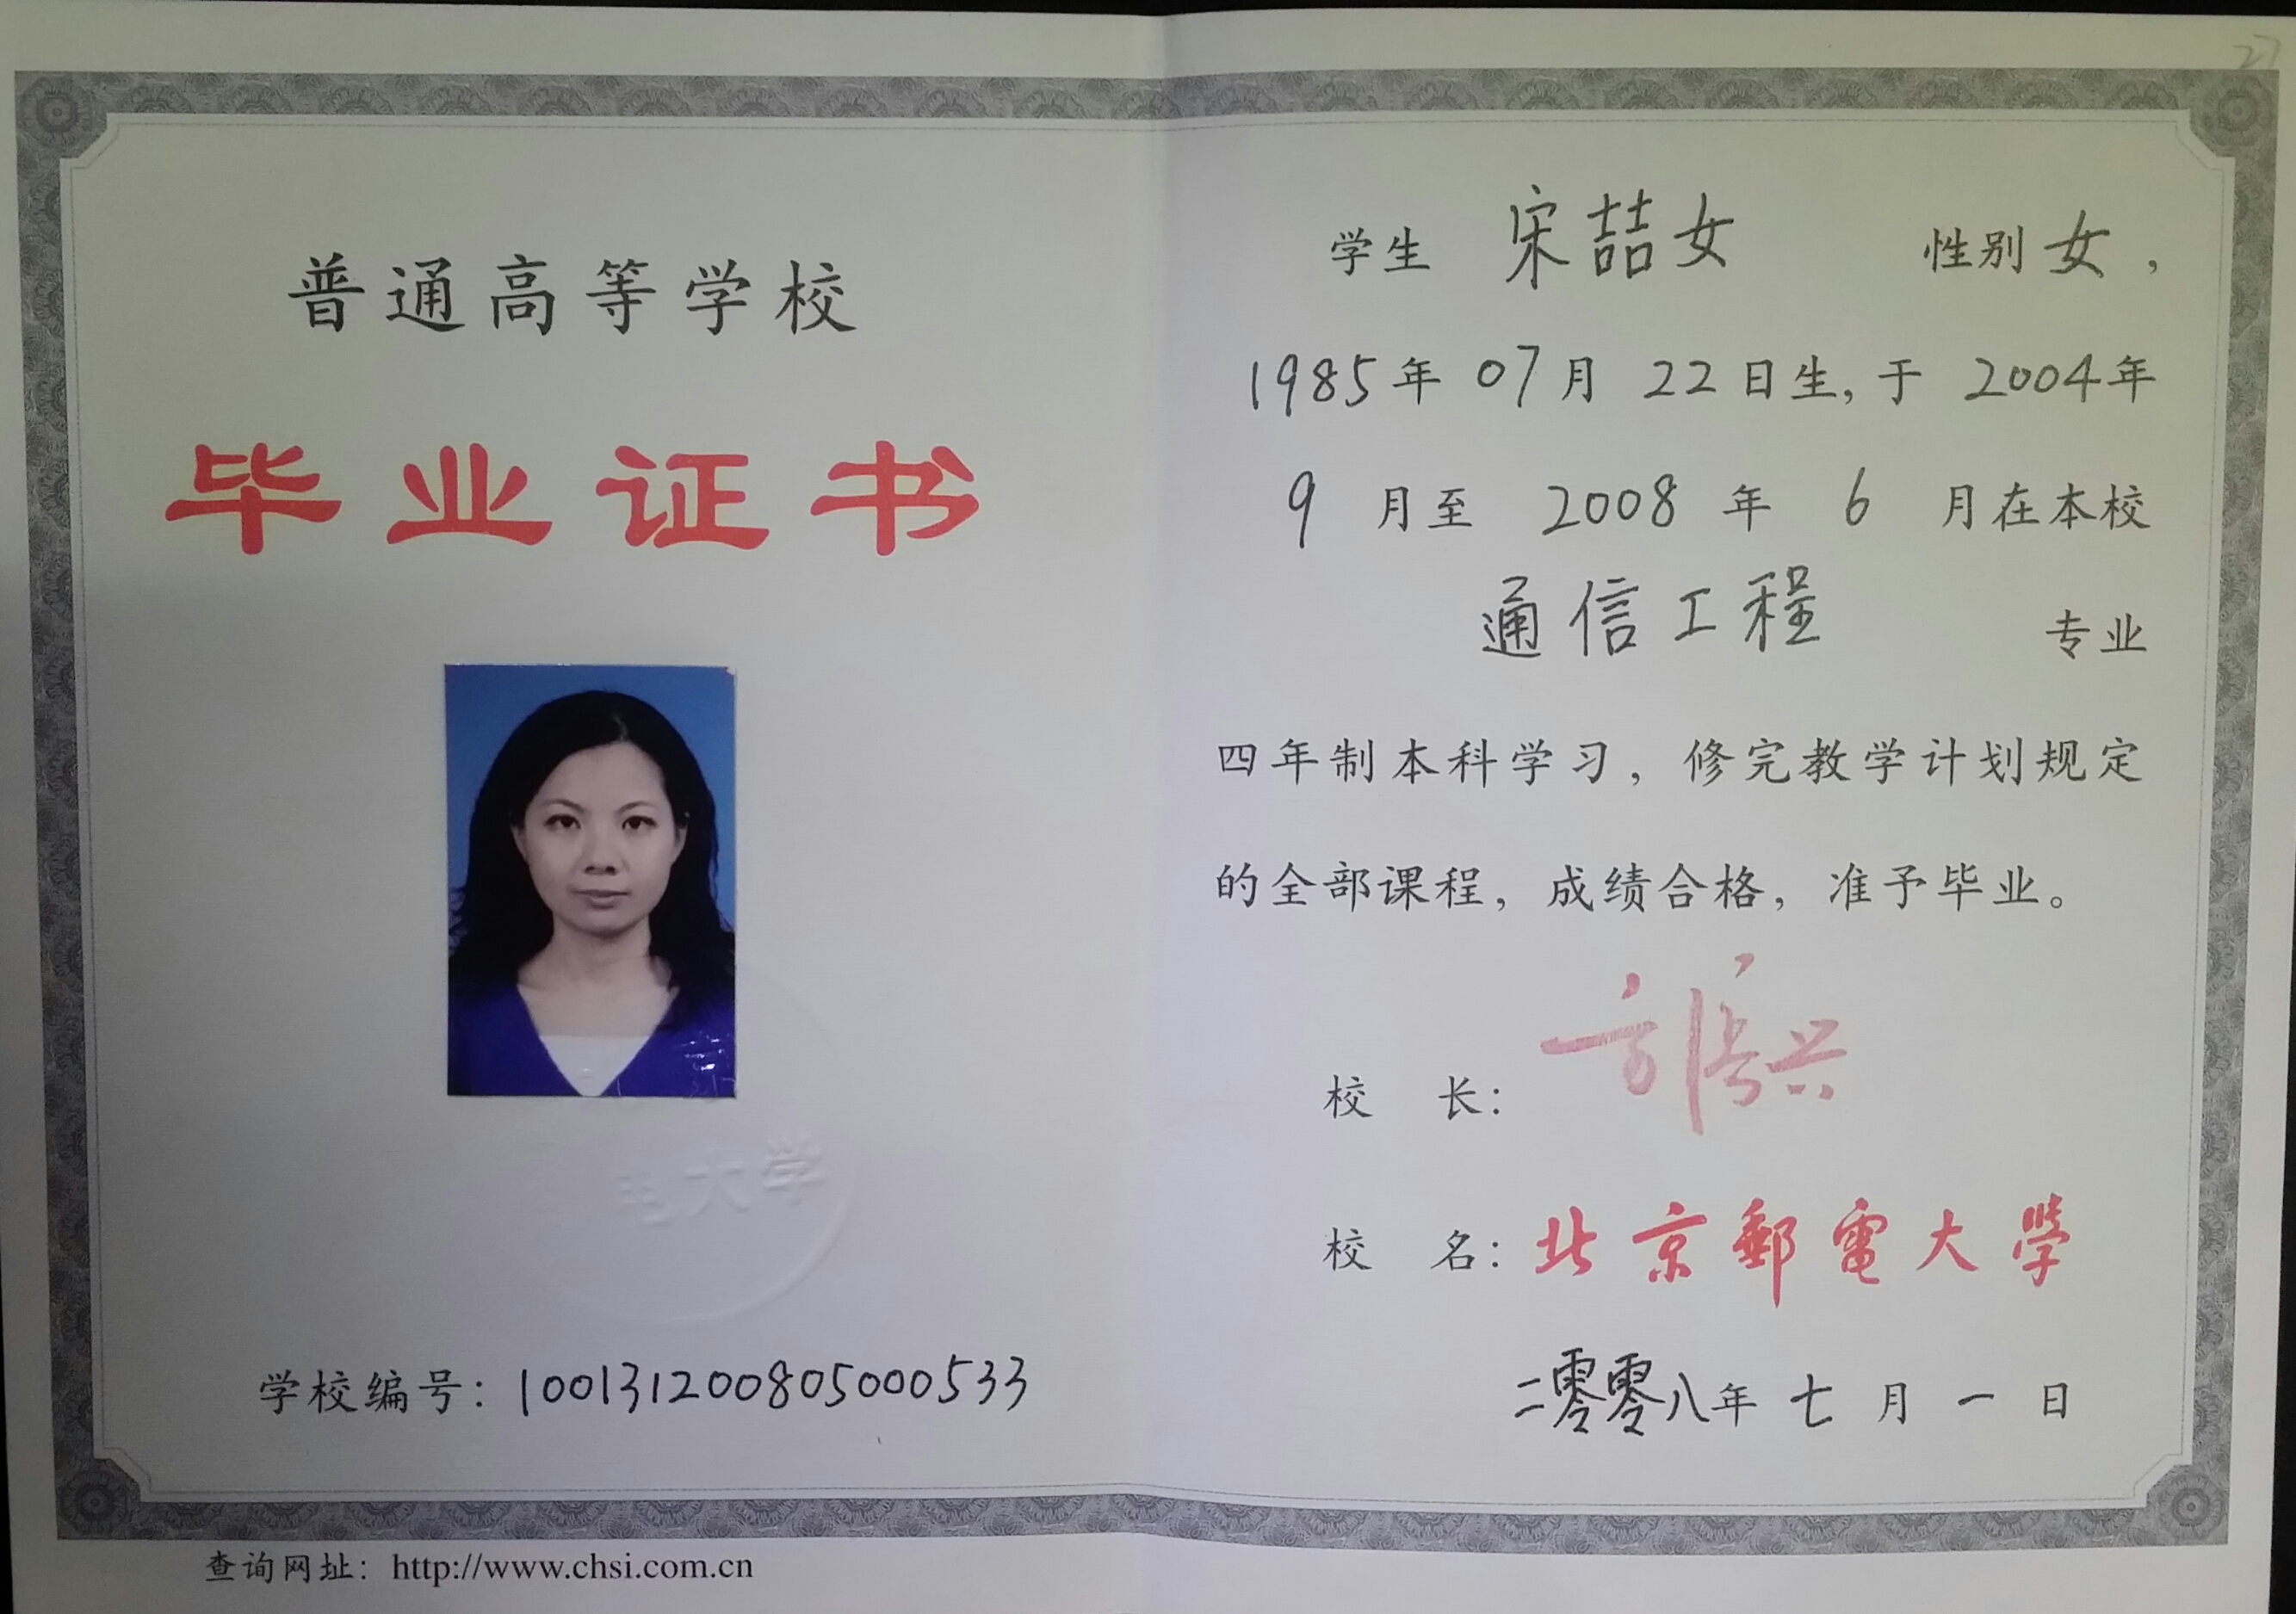 普通高等学校
毕业证书
电大学
学校编号：100131200805000533
查询网址：http://www.chsi.com.cn
学生 宋喆女 性别 女，
1985年 07月 22日生，于 2004年
9 月至 2008 年 6 月在本校
通信工程 专业
四年制本科学习，修完教学计划规定
的全部课程，成绩合格，准予毕业。
校 长：
校 名：北京郵電大學
二零零八年 七 月 一 日
27